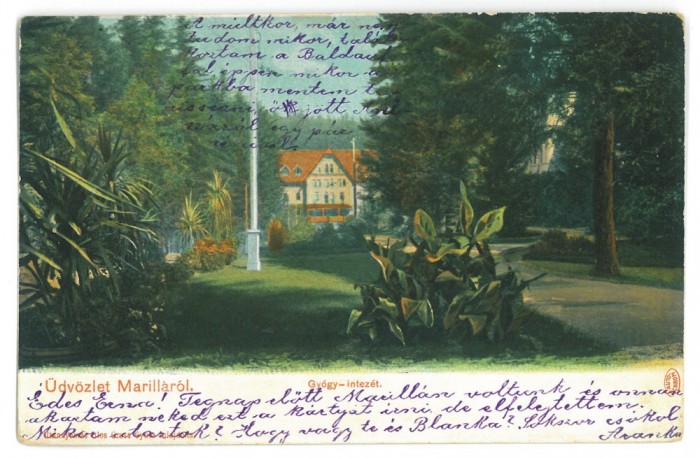 A múltkor, már nem
tudom mikor, talál
koztam a Baldauf
tal éppen mikor a
parkba mentem te
jött
egy pár
Üdvözlet Marilláról.
Gyógy-intezét.
Édes Erna! Tegnap előtt Marillán voltunk és onnan
akartam neked ezt a kártyát irni, de elfelejtettem.
Mikor Hogy vagy te és Blanka? Sokszor csókol
Aranka